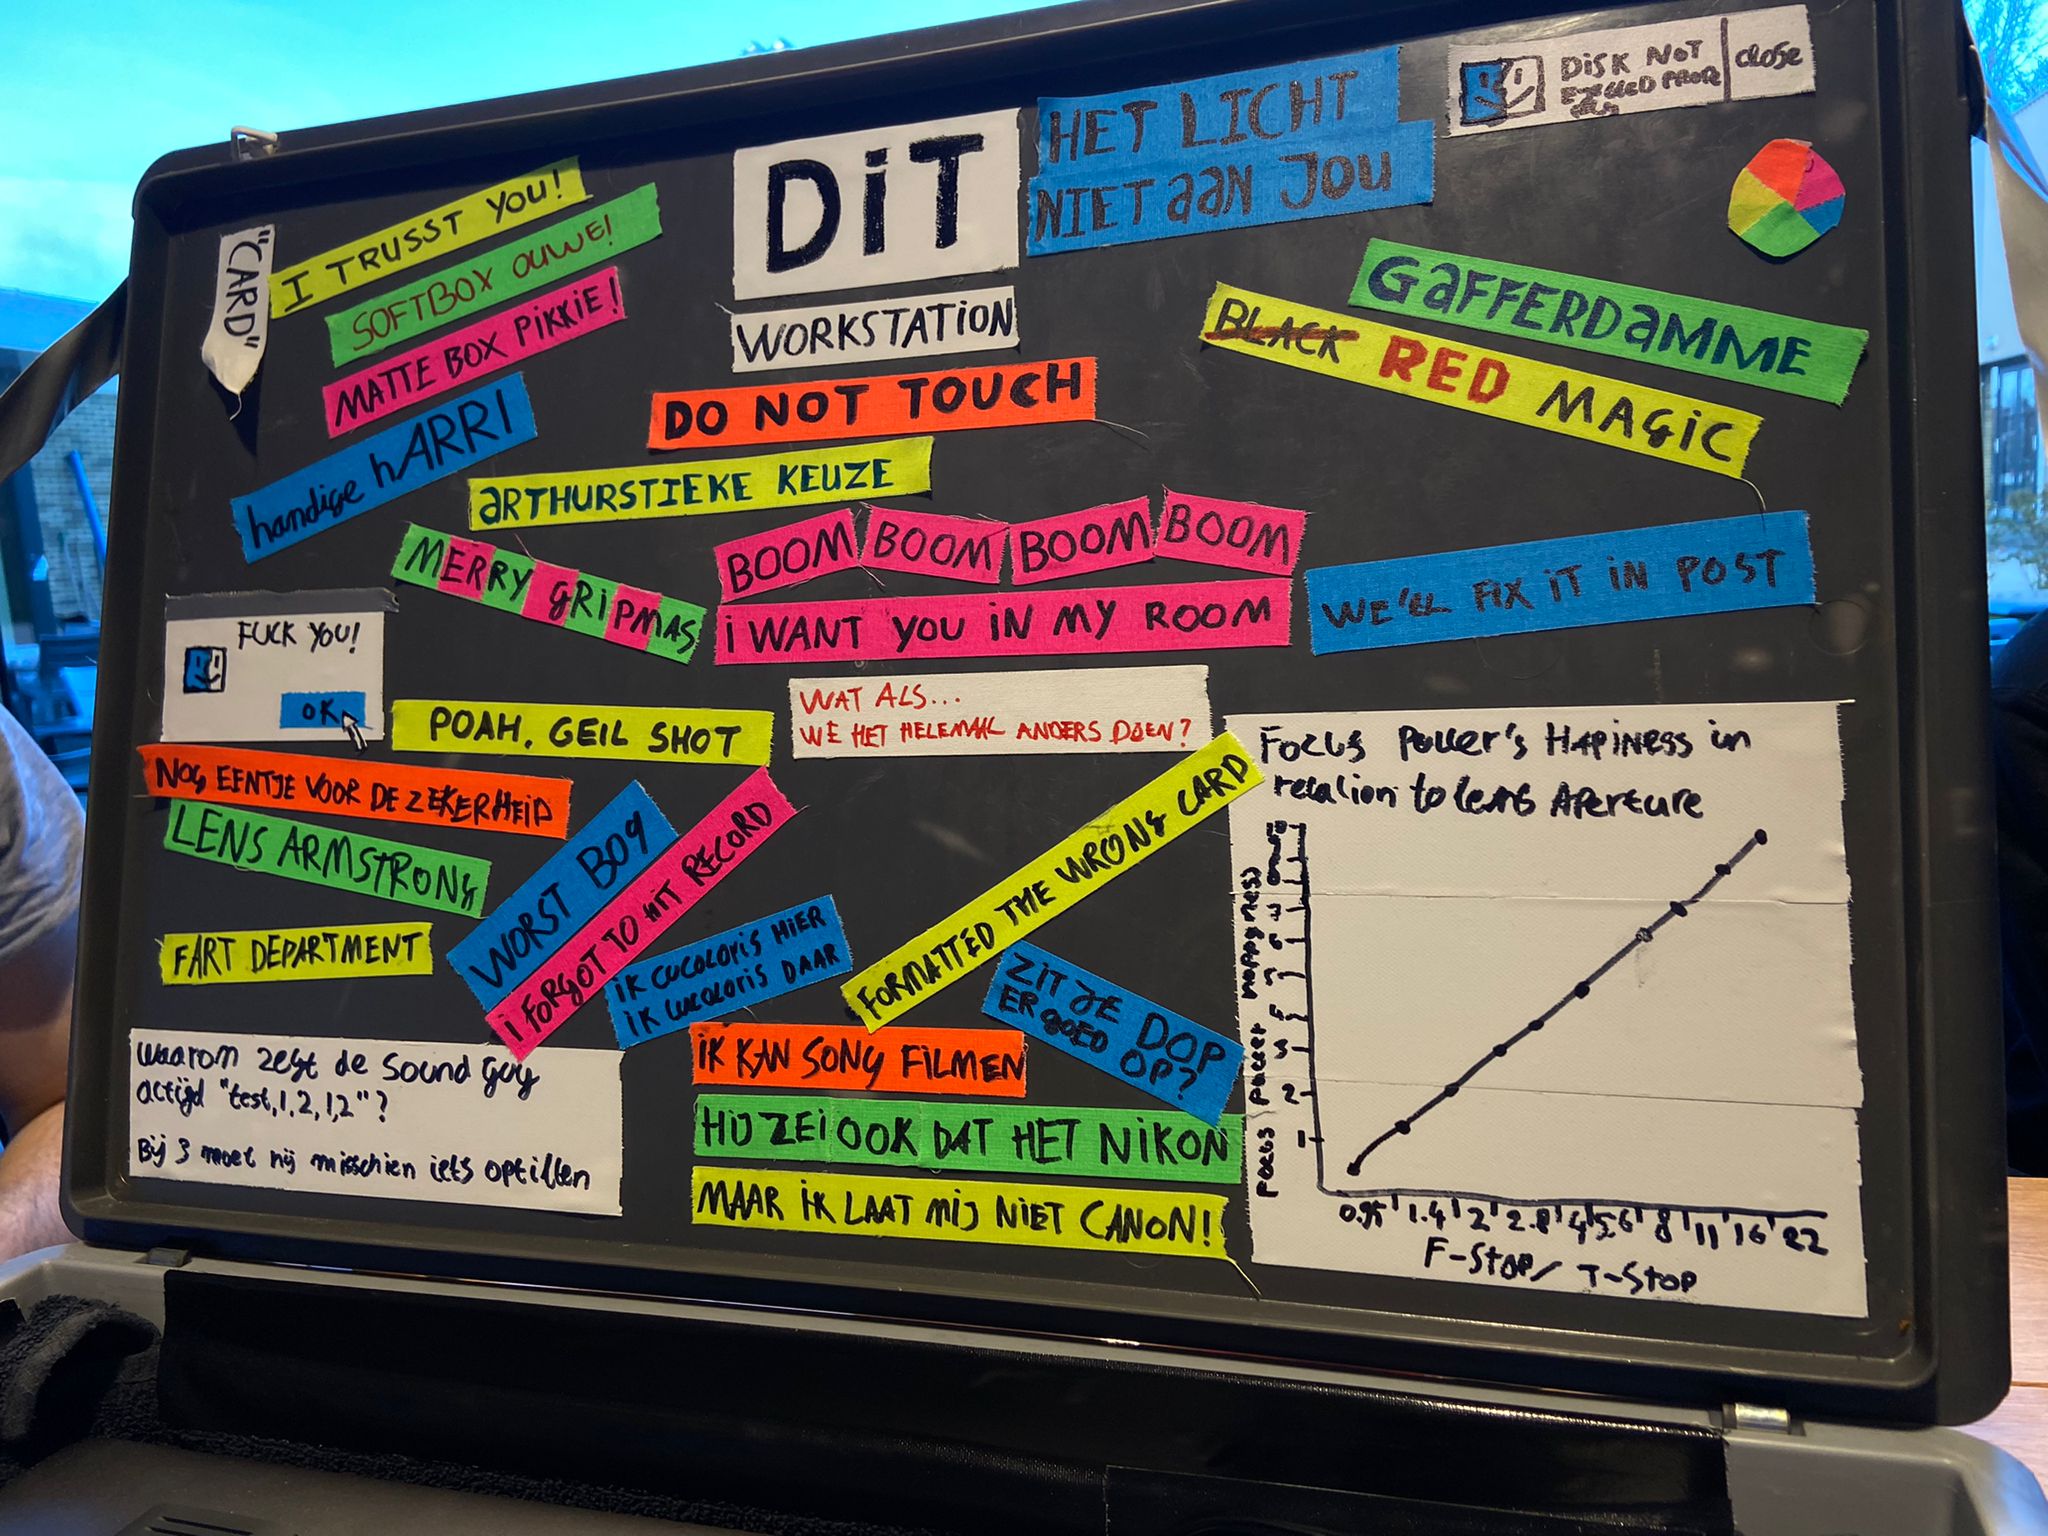 DiT
HET LICHT
NIET aaN JOU
DiSK NOT
close
"CARD"
I TRUSST YOU!
SOFTBOX OUWE!
MATTE BOX PiKKiE!
handige hARRI
WORKSTATiON
DO NOT TOUCH
GaFFERDaMME
BLACK RED MAGiC
aRTHURSTIEKE KEUZE
MERRY GRiPMAS
BOOM BOOM BOOM BOOM
i WANT YOU iN MY ROOM
WE'LL FiX iT iN POST
FUCK YOU!
OK
POAH, GEiL SHOT
WAT ALS...
WE HET HELEMAAL ANDERS DOEN?
NOG EENTJE VOOR DE ZEKERHEiD
LENS ARMSTRONG
WORST BOY
i FORGOT TO HiT RECORD
FORMATTED THE WRONG CARD
FART DEPARTMENT
iK CUCOLORiS HiER
iK CUCOLORiS DAAR
ZiT JE DOP
ER GOED OP?
waarom zegt de sound guy
altijd "test,1,2,1,2"?
Bij 3 moet hij misschien iets optillen
iK KAN SONY FiLMEN
HIJ ZEi OOK DAT HET NiKON
MAAR iK LAAT MIJ NiET CANON!
Focus Puller's Hapiness in
relation to lens Aperture
Focus Puller Happyness
10
9
8
7
6
5
4
3
2
1
0.95 1.4 2 2.8 4 5.6 8 11 16 22
F-Stop/ T-Stop